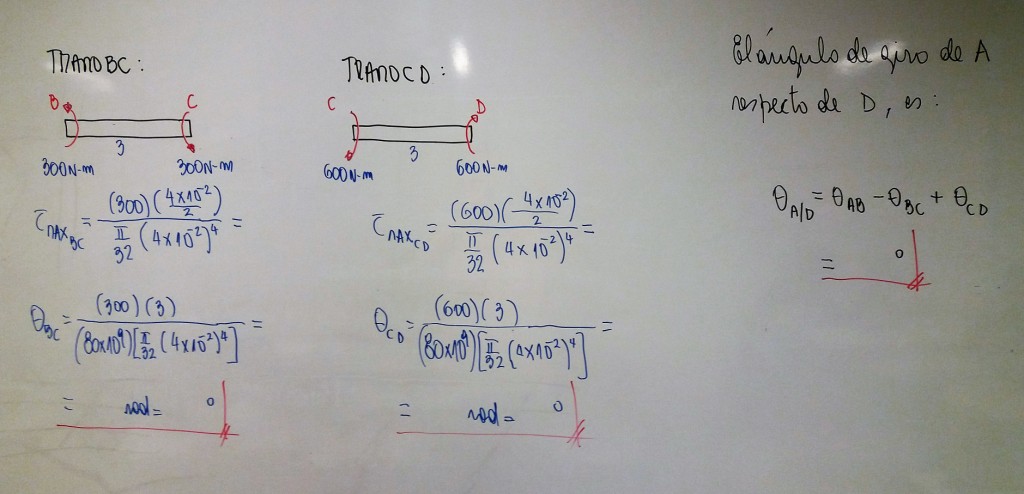 TRAMO BC:
B C
3
300N-m 300N-m
τMAXBC = (300)(4x10^-2/2) / π/32 (4x10^-2)^4 =
θBC = (300)(3) / (80x10^9)[π/32 (4x10^-2)^4] =
= rad = °
TRAMO CD:
C D
3
600N-m 600N-m
τMAXCD = (600)(4x10^-2/2) / π/32 (4x10^-2)^4 =
θCD = (600)(3) / (80x10^9)[π/32 (4x10^-2)^4] =
= rad = °
El ángulo de giro de A
respecto de D, es:
θA/D = θAB - θBC + θCD
= °